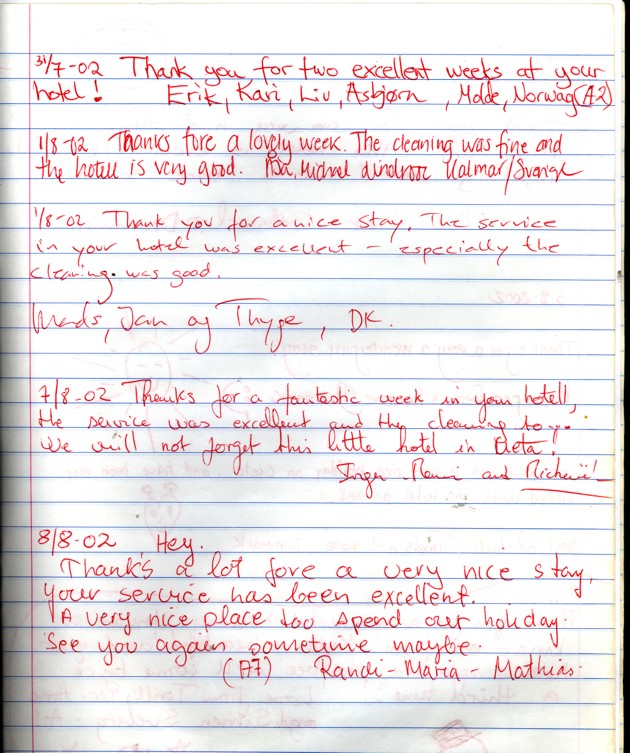 31/7-02 Thank you for two excellent weeks at your
hotel! Erik, Kari, Liv, Asbjørn, Molde, Norway (A2)
1/8-02 Thanks fore a lovely week. The cleaning was fine and
the hotell is very good. Åsa, Michael Kalmar/Sverige
1/8-02 Thank you for a nice stay. The service
in your hotel was excellent – especially the
cleaning was good.
Mads, Jan og Thyge, DK.
7/8-02 Thanks for a fantastic week in your hotell,
the service was excellent and the cleaning to...
We will not forget this little hotel in Creta!
Inger and
8/8-02 Hey.
Thank's a lot fore a very nice stay,
your service has been excellent.
A very nice place too spend our holiday.
See you again sometime maybe.
(A7) Randi-Maria-Mathias.